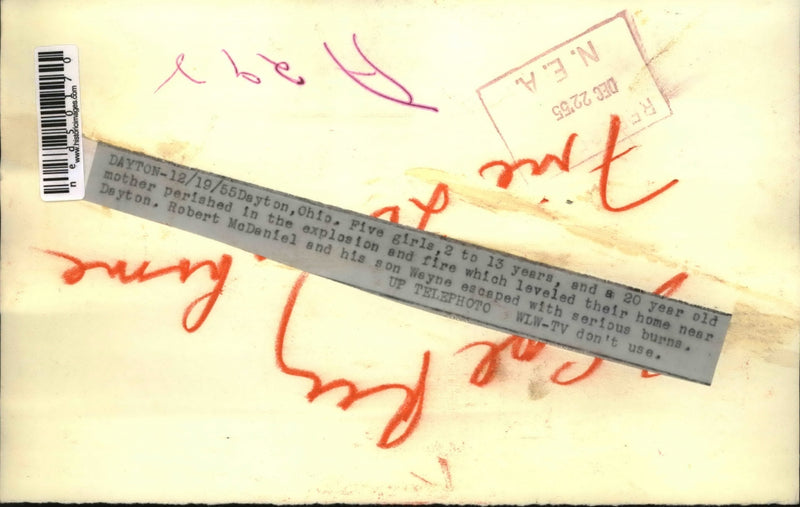 DAYTON-12/19/55Dayton,Ohio. Five girls,2 to 13 years, and a 20 year old
mother perished in the explosion and fire which leveled their home near
Dayton. Robert McDaniel and his son Wayne escaped with serious burns.
UP TELEPHOTO WLW-TV don't use.
www.historicimages.com
ned50170
N. E. A.
DEC 22 '55
REF
home